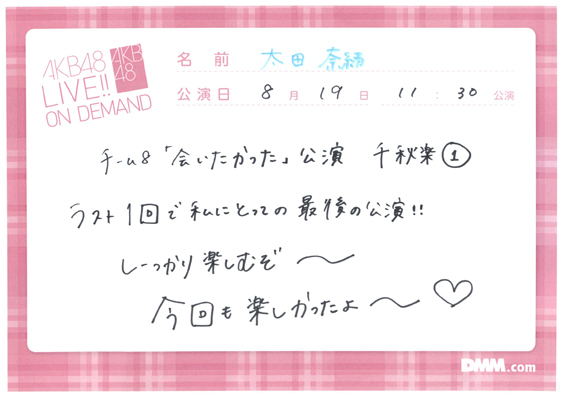 AKB48
LIVE!!
ON DEMAND
AKB
48
名前 太田 奈緒
公演日 8月19日 11:30公演
チーム8「会いたかった」公演 千秋楽①
ラスト1回で私にとっての最後の公演!!
しーっかり楽しむぞ〜
今回も楽しかったよ〜♡
DMM.com